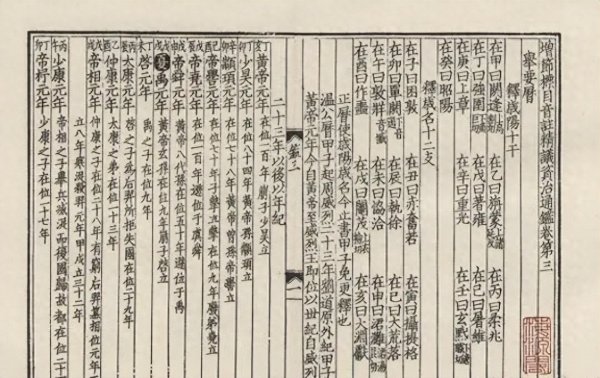 增節標目音註精議資治通鑑卷第三
舉要曆
釋歲陽十干
在甲曰閼逢 在乙曰旃蒙 在丙曰柔兆
在丁曰強圉 在戊曰著雍 在己曰屠維
在庚曰上章 在辛曰重光 在壬曰玄黓
在癸曰昭陽
釋歲名十二支
在子曰困敦 在丑曰赤奮若 在寅曰攝提格
在卯曰單閼 在辰曰執徐 在巳曰大荒落
在午曰敦牂 在未曰協洽 在申曰涒灘
在酉曰作噩 在戌曰閹茂 在亥曰大淵獻
正曆使歲陽歲名今止書甲子免更釋也
溫公曆甲子起周威烈二十三年劉道原外紀甲子
黃帝元年今自黃帝至威烈王即位以世紀自威烈
二十三年以後以年紀
黃帝元年 在位一百年子少昊立
少昊元年 在位八十四年黃帝孫顓頊立
顓頊元年 在位七十八年黃帝曾孫帝嚳立
帝嚳元年 在位七十年子摯立摯在位九年廢弟堯立
帝堯元年 在位一百年遜位于虞舜
帝舜元年 黃帝八代孫在位五十年遜位于禹
夏 禹元年 黃帝玄孫在位九年崩子啓立
啓元年 禹之子在位九年
太康元年 啓之子為后羿所拒失國在位二十九年
仲康元年 太康之弟在位十三年
帝相元年 仲康之子在位二十八年有窮后羿篡相位元年
立八年寒浞殺羿元年甲戌立三十二年
少康元年 帝相之子舉兵滅浞而後國歸故都在位二十
帝杼元年 少康之子在位一十七年